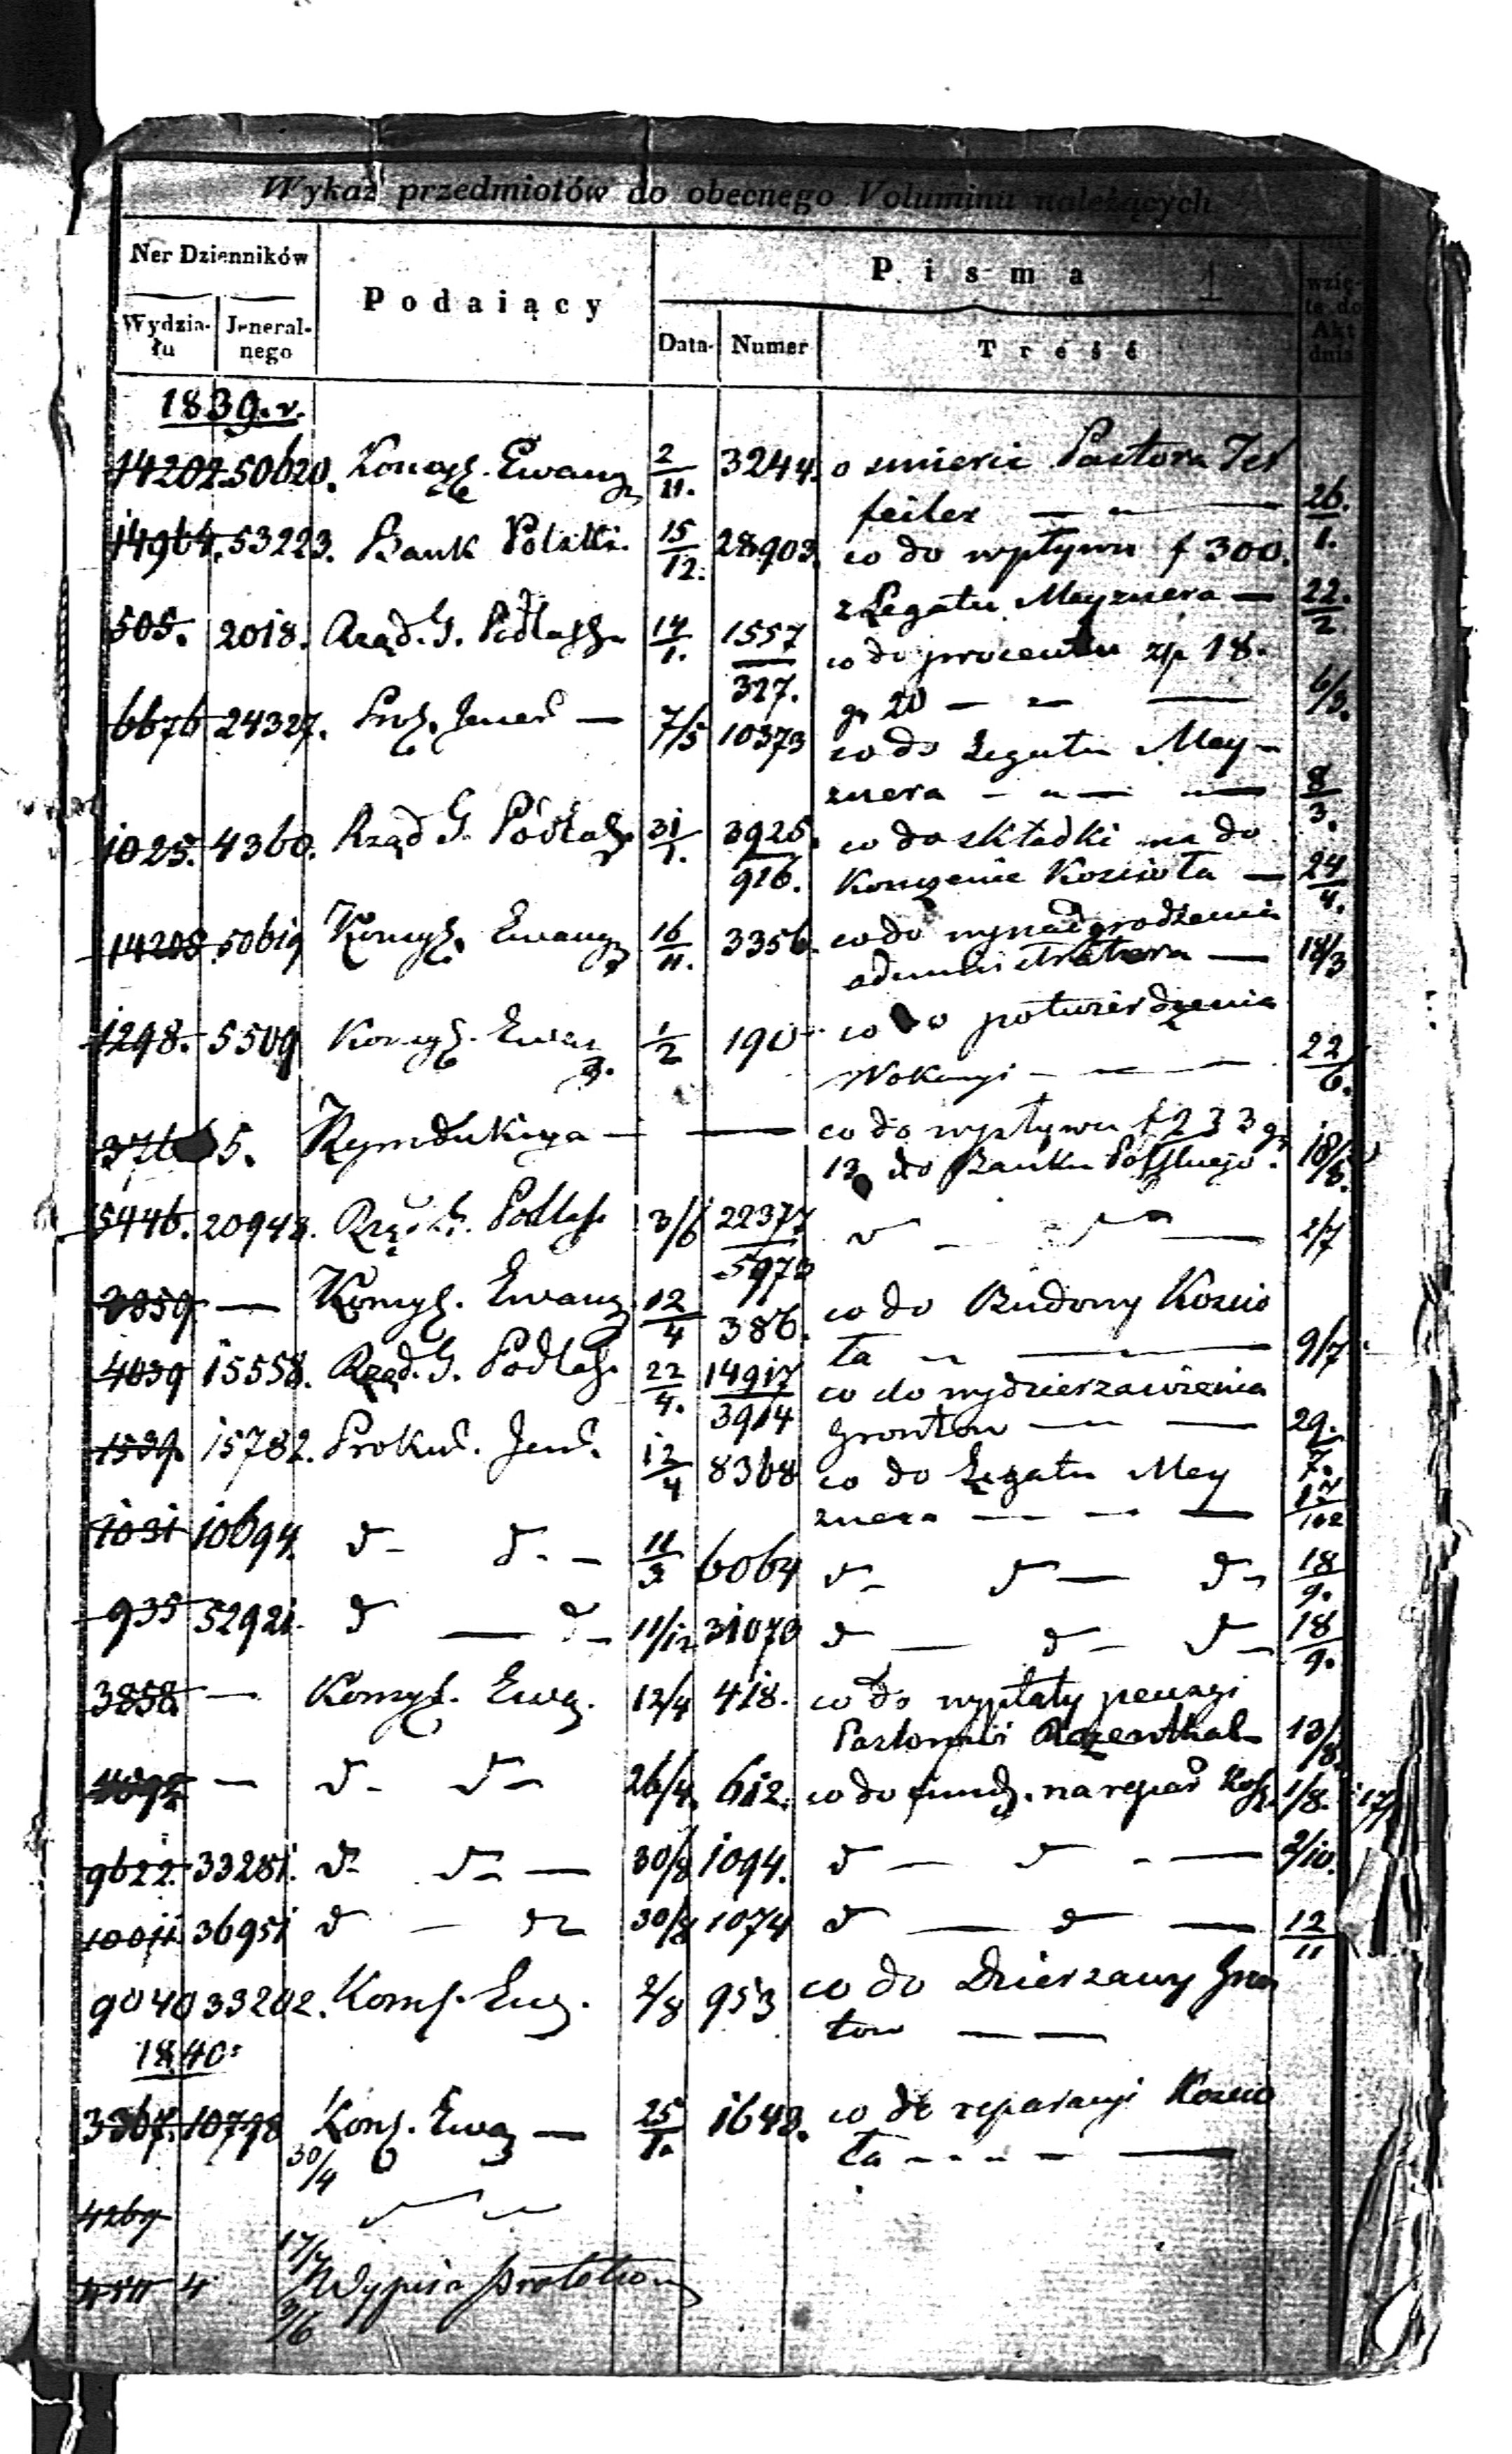 Wykaz przedmiotów do obecnego Voluminu należących
Ner Dzienników
Podaiący
Pisma 1
wzię-
te do
Akt
dnia
Wydzia-
łu
Jeneral-
nego
Data
Numer
Treść
1839. r.
14202. 50620. Konsys. Ewang 2/11. 3244. o smierci Pastora
feiler — 26/1.
14964. 53223. Bank Polski. 15/12. 28903. co do wpływu f 300.
z Legatu Meyznera — 22/2.
505. 2018. Rząd. G. Podlass. 14/1. 1557/327. co do procentu zp 18.
gr 20 — — 6/3.
6676 24327. Prok. Jener — 7/5 10373 co do Legatu Mey-
znera — — 8/3.
1025. 4360. Rząd G. Podlas. 31/1. 3925./916. co do składki na do
konczenie Koscioła — 24/4.
14208. 50619 Konsys. Ewang 16/11. 3356. co do wynadgrodzenia
administratora — 18/3
1298. 5509 Konsys. Ewang. 1/2 190 co do potwierdzenia
Wokacyi — — 22/6.
5. — — co do wpływu f 233 gr
13 do Banku Polskiego.
5446. 20948. Rząd G. Podlas. 3/6 22377 v — 2/7
— Konsys. Ewang. 12/4 386. co do Budowy Koscio
ła — 9/7
4039 15558. Rząd. G. Podlas. 22/4. 14917/3914 co do wydzierzawienia
Grontow — — 29/7.
1539. 15782. Prokur. Jen. 12/4 8368 co do Legatu Mey
znera — — —
1031 10694. d- d. - 11/3 6064 d- d — d-
18/9.
935 52921. d — d- 11/12 31070 d — d- d- 18/9.
3858. — Konsys. Ewa. 12/4 418. co do wypłaty pensyi
Pastorowi Rozenthal 13/8.
— d- d- 26/4. 612. co do fund. na repar Kos. 1/8. 17/
9622. 33281. d- d- — 30/8 1094. d — d - — 2/10.
10011 36951 d — d- 30/8 1074 d — d — 12/11
9040 33202. Kons. Ewg. 2/8 953 co do Dzierzawy Gron
tow — —
1840:
3367. 10798 Kons. Ewa — 25/1. 1648. co do reparacyi Koscio
ła — — —
30/4
4267
17/4
4 Wypis z
9/6